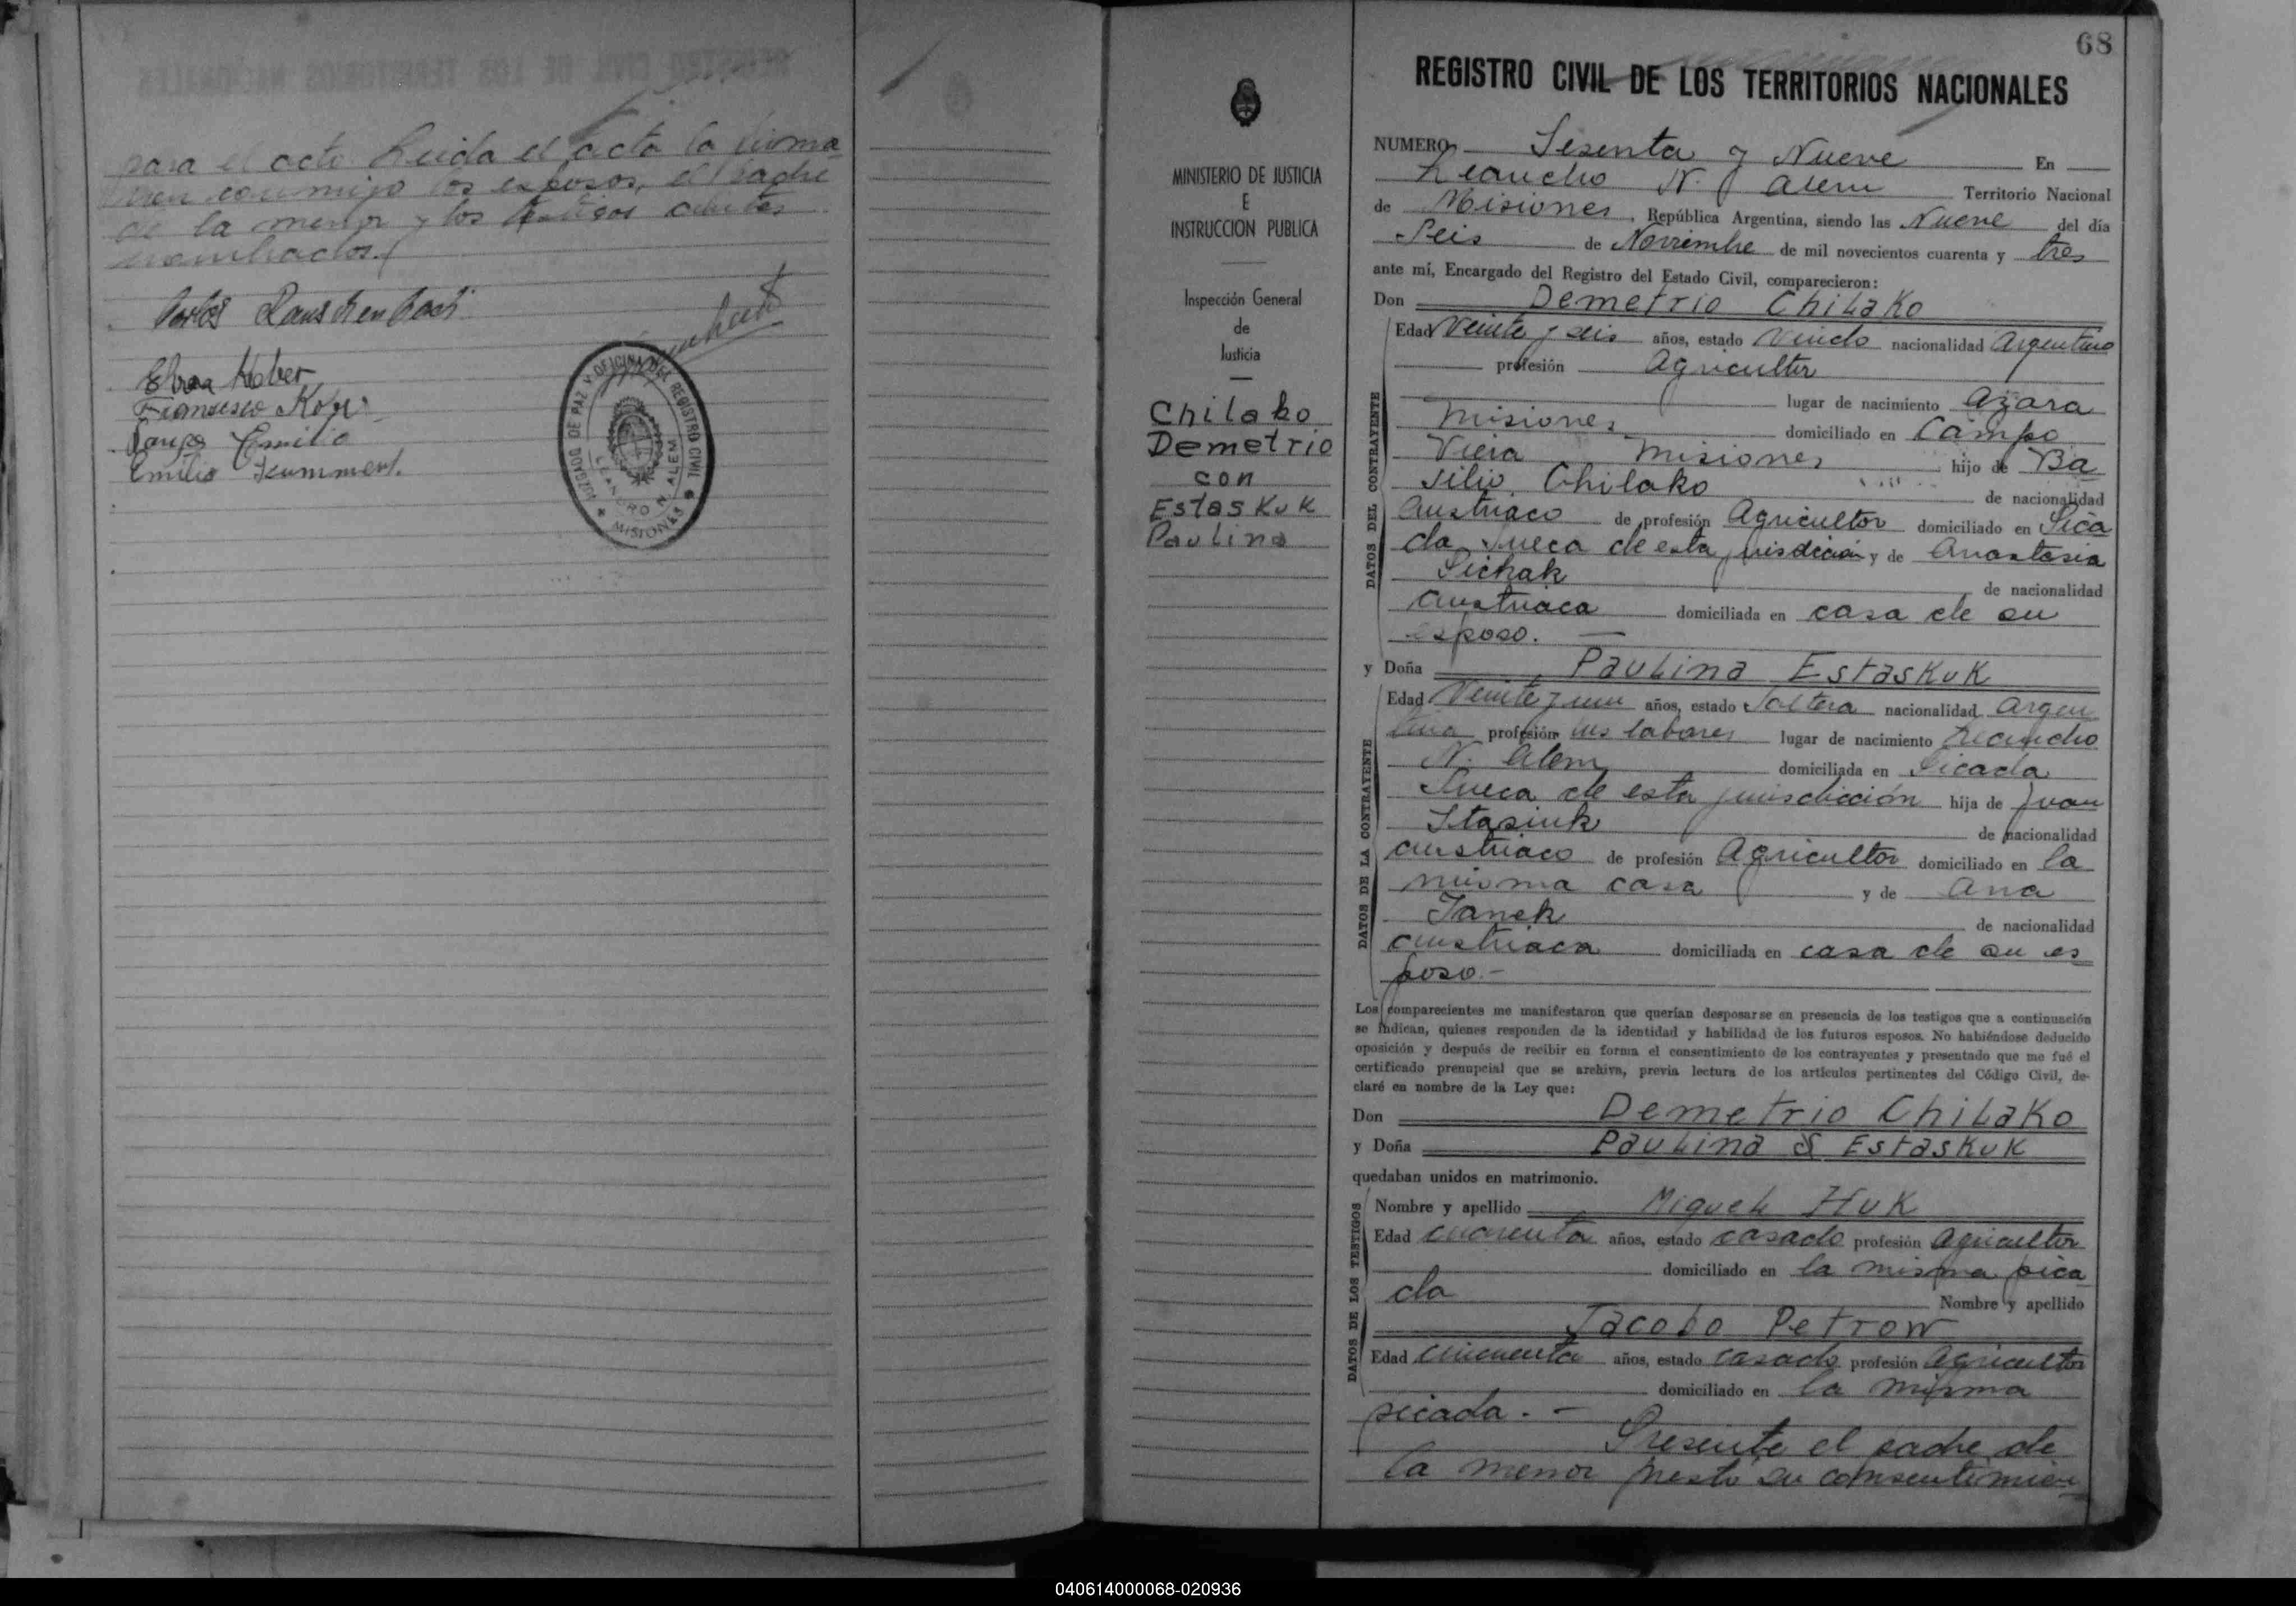 para el acto. Leida el acta la firma-
ron conmigo los esposos, el padre
de la menor y los testigos antes
nombrados.
Carlos Rauschenbach
Kober
Francisco
Emilio
Emilio
JUZGADO DE PAZ Y OFICINA DEL REGISTRO CIVIL
LEANDRO N. ALEM
MISIONES
MINISTERIO DE JUSTICIA
E
INSTRUCCION PUBLICA
Inspección General
de
Justicia
Chilako
Demetrio
con
Estaskuk
Paulina
68
REGISTRO CIVIL DE LOS TERRITORIOS NACIONALES
NUMERO Sesenta y Nueve En
Leandro N. Alem Territorio Nacional
de Misiones, República Argentina, siendo las Nueve del día
Seis de Noviembre de mil novecientos cuarenta y tres
ante mí, Encargado del Registro del Estado Civil, comparecieron:
Don Demetrio Chilako
Edad Veinte y seis años, estado Viudo nacionalidad Argentino
profesión Agricultor
lugar de nacimiento Azara
Misiones domiciliado en Campo
Viera Misiones hijo de Ba
silio Chilako de nacionalidad
Austriaco de profesión Agricultor domiciliado en Pica
da Sueca de esta jurisdicción y de Anastasia
Pichak de nacionalidad
Austriaca domiciliada en casa de su
esposo. —
DATOS DEL CONTRAYENTE
y Doña Paulina Estaskuk
Edad Veinte y un años, estado Soltera nacionalidad Argen
tina profesión sus labores lugar de nacimiento Leandro
N. Alem domiciliada en Picada
Sueca de esta jurisdicción hija de Juan
Stasiuk de nacionalidad
austriaco de profesión Agricultor domiciliado en la
misma casa y de Ana
Janek de nacionalidad
austriaca domiciliada en casa de su es
poso.-
DATOS DE LA CONTRAYENTE
Los comparecientes me manifestaron que querían desposarse en presencia de los testigos que a continuación
se indican, quienes responden de la identidad y habilidad de los futuros esposos. No habiéndose deducido
oposición y después de recibir en forma el consentimiento de los contrayentes y presentado que me fué el
certificado prenupcial que se archiva, previa lectura de los artículos pertinentes del Código Civil, de-
claré en nombre de la Ley que:
Don Demetrio Chilako
y Doña Paulina Estaskuk
quedaban unidos en matrimonio.
Nombre y apellido Miguel Huk
Edad cuarenta años, estado casado profesión Agricultor
domiciliado en la misma pica
da Nombre y apellido
Jacobo Petrow
Edad cincuenta años, estado casado profesión Agricultor
domiciliado en la misma
picada. -
DATOS DE LOS TESTIGOS
Presente el padre de
la menor presto su consentimien-
040614000068-020936